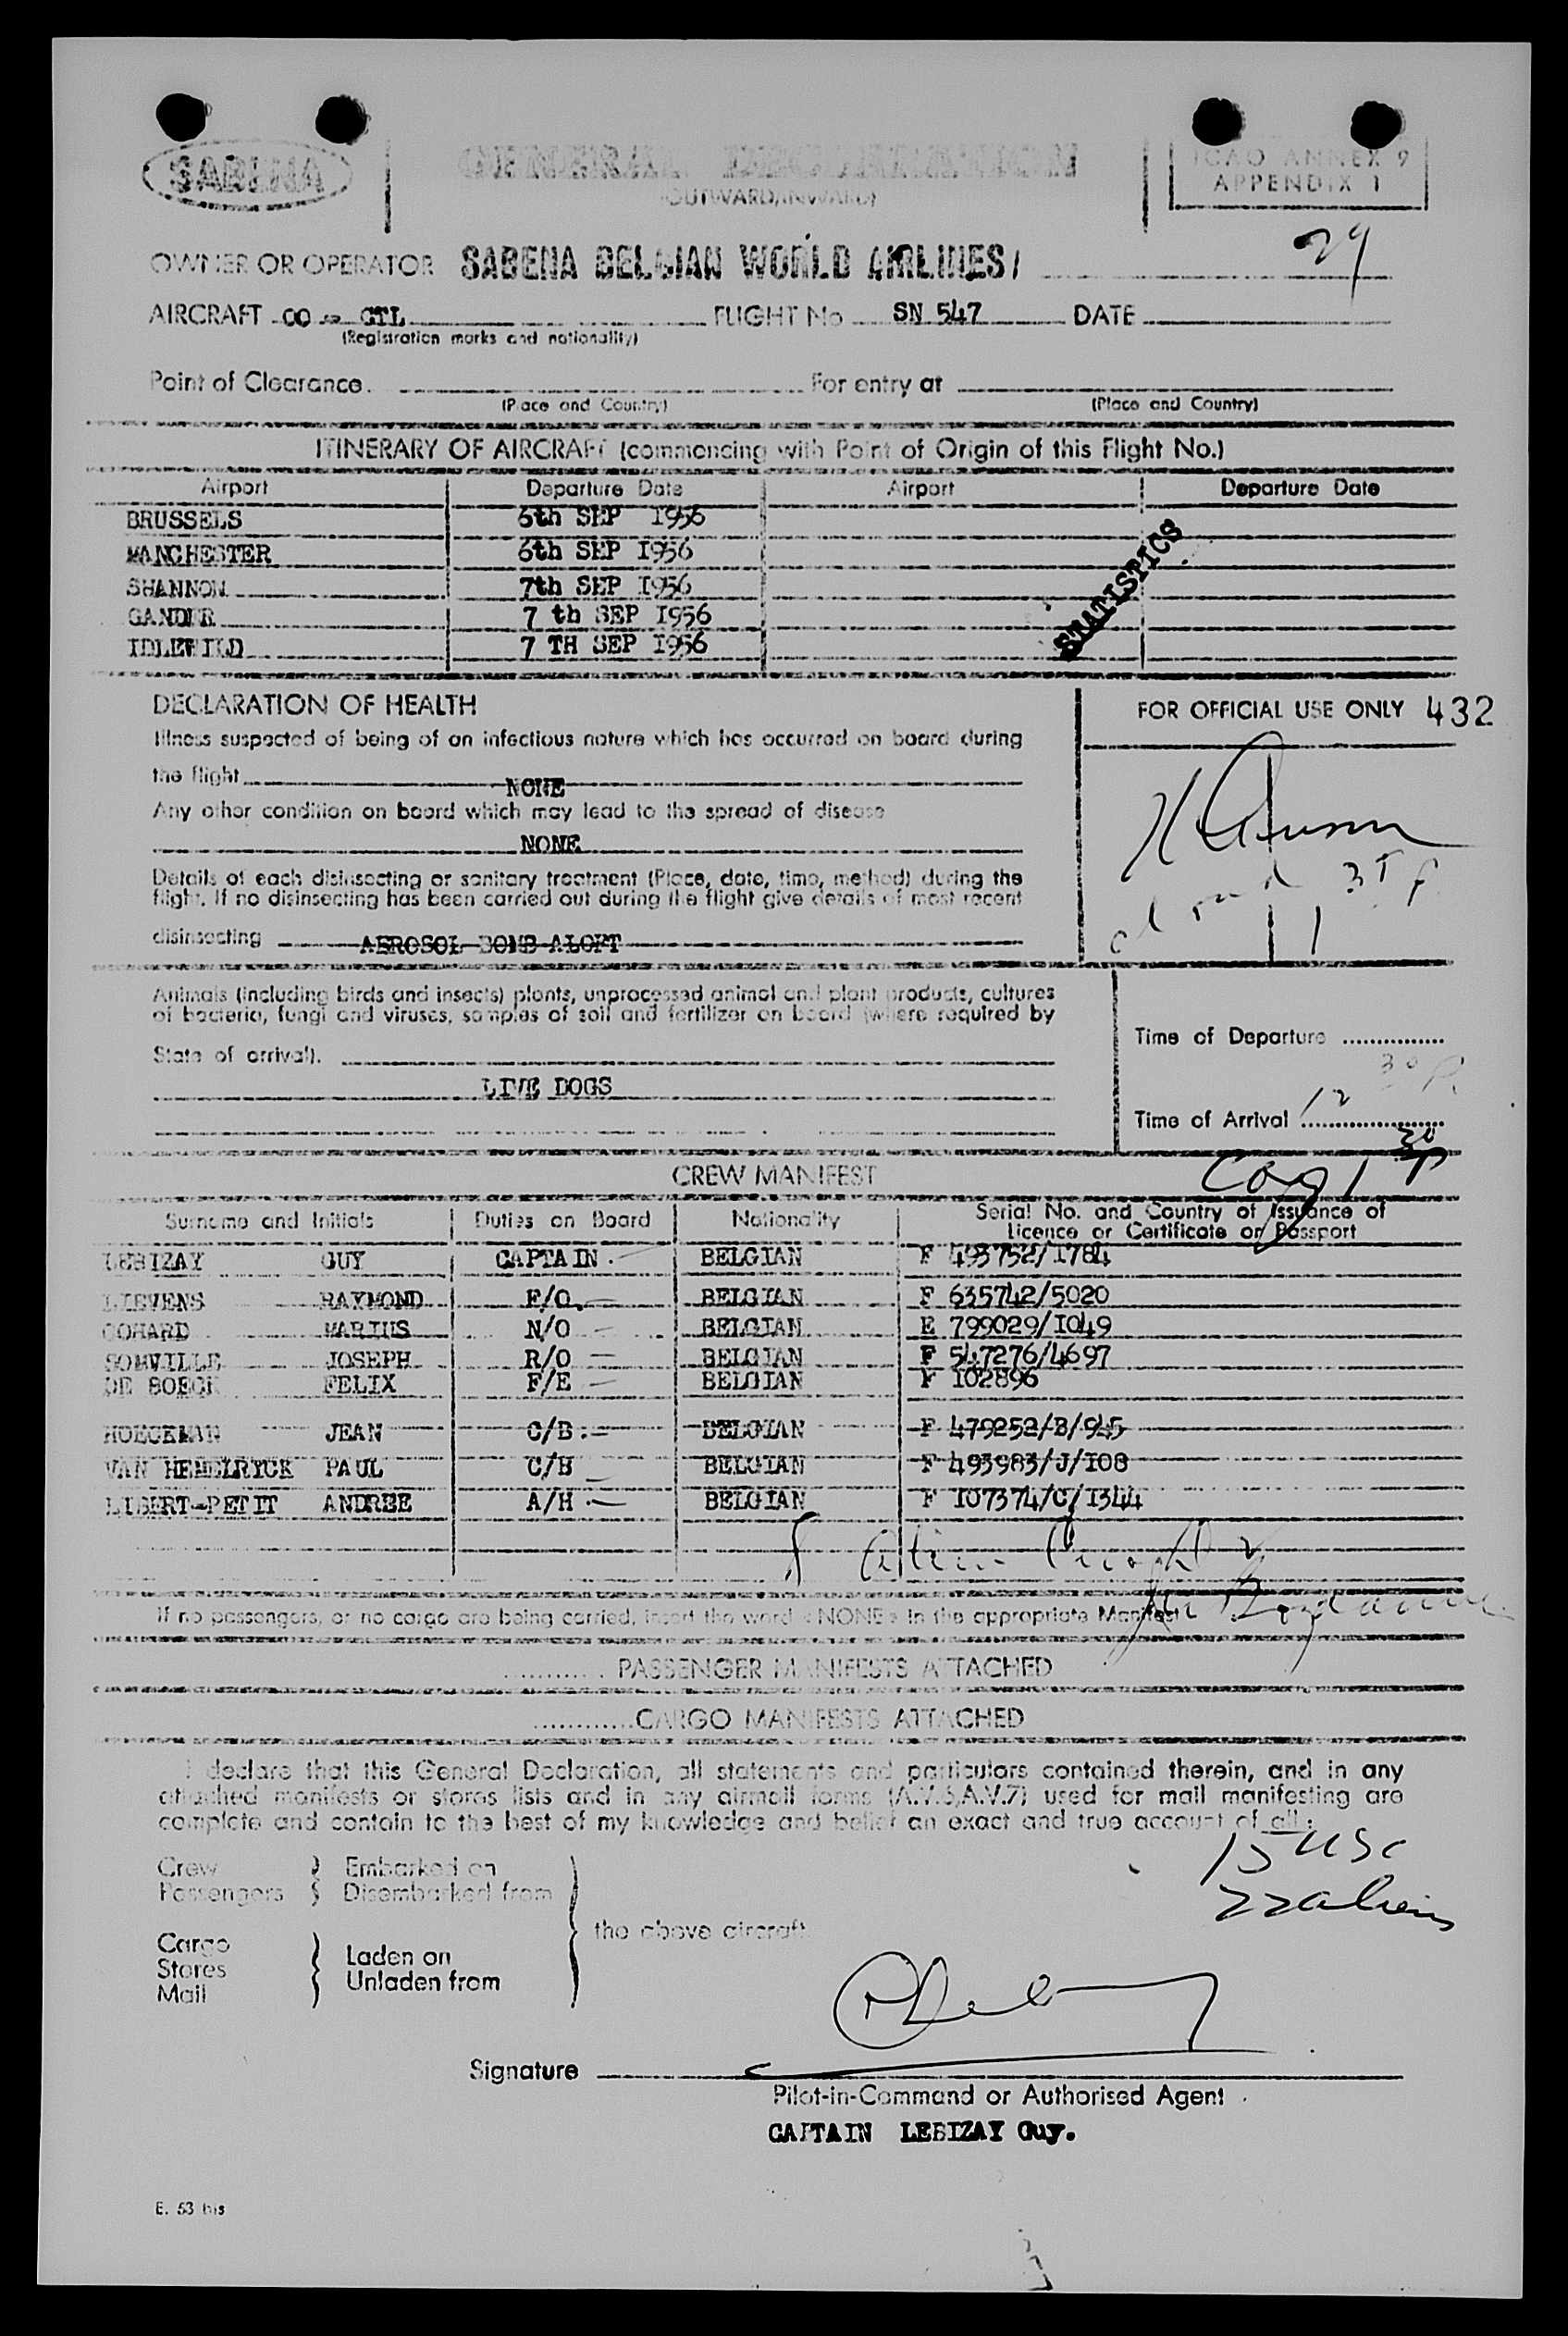 SABENA
GENERAL DECLARATION
(OUTWARD/INWARD)
ICAO ANNEX 9
APPENDIX 1
29
OWNER OR OPERATOR SABENA BELGIAN WORLD AIRLINES/
AIRCRAFT OO - CTL FLIGHT No SN 547 DATE
(Registration marks and nationality)
Point of Clearance. For entry at
(Place and Country) (Place and Country)
ITINERARY OF AIRCRAFT (commencing with Point of Origin of this Flight No.)
Airport Departure Date Airport Departure Date
BRUSSELS 6th SEP 1956
MANCHESTER 6th SEP I956
SHANNON 7th SEP I956
GANDER 7 th SEP I956
IDLEWILD 7 TH SEP I956
STATISTICS
DECLARATION OF HEALTH
FOR OFFICIAL USE ONLY 432
Illness suspected of being of an infectious nature which has occurred on board during
the flight NONE
Any other condition on board which may lead to the spread of disease
NONE
Details of each disinsecting or sanitary treatment (Place, date, time, method) during the
flight. If no disinsecting has been carried out during the flight give details of most recent
disinsecting AEROSOL BOMB ALOFT
Animals (including birds and insects) plants, unprocessed animal and plant products, cultures
of bacteria, fungi and viruses, samples of soil and fertilizer on board (where required by
State of arrival).
LIVE DOGS
Time of Departure
30 P.
Time of Arrival 12
30
CREW MANIFEST
Surname and Initials Duties on Board Nationality Serial No. and Country of Issuance of
Licence or Certificate or Passport
LEBIZAY GUY CAPTAIN. BELGIAN F 493752/I784
LIEVENS RAYMOND F/O. BELGIAN F 635742/5020
COHARD MARIUS N/O BELGIAN E 799029/I049
SOMVILLE JOSEPH R/O BELGIAN F 547276/4697
DE BOECK FELIX F/E BELGIAN F I02896
HOECKMAN JEAN C/B. BELGIAN F 479252/B/945
VAN HEMELRYCK PAUL C/H BELGIAN F 493983/J/I08
LIBERT-PETIT ANDREE A/H BELGIAN F I07374/C/I344
If no passengers, or no cargo are being carried, insert the word « NONE » in the appropriate Manifest
PASSENGER MANIFESTS ATTACHED
CARGO MANIFESTS ATTACHED
I declare that this General Declaration, all statements and particulars contained therein, and in any
attached manifests or stores lists and in any airmail forms (A.V.3,A.V.7) used for mail manifesting are
complete and contain to the best of my knowledge and belief an exact and true account of all:
15 USC
22 aliens
Crew Embarked on
Passengers Disembarked from
the above aircraft
Cargo
Stores Laden on
Mail Unladen from
Signature
Pilot-in-Command or Authorised Agent
CAPTAIN LEBIZAY Guy.
E. 53 bis